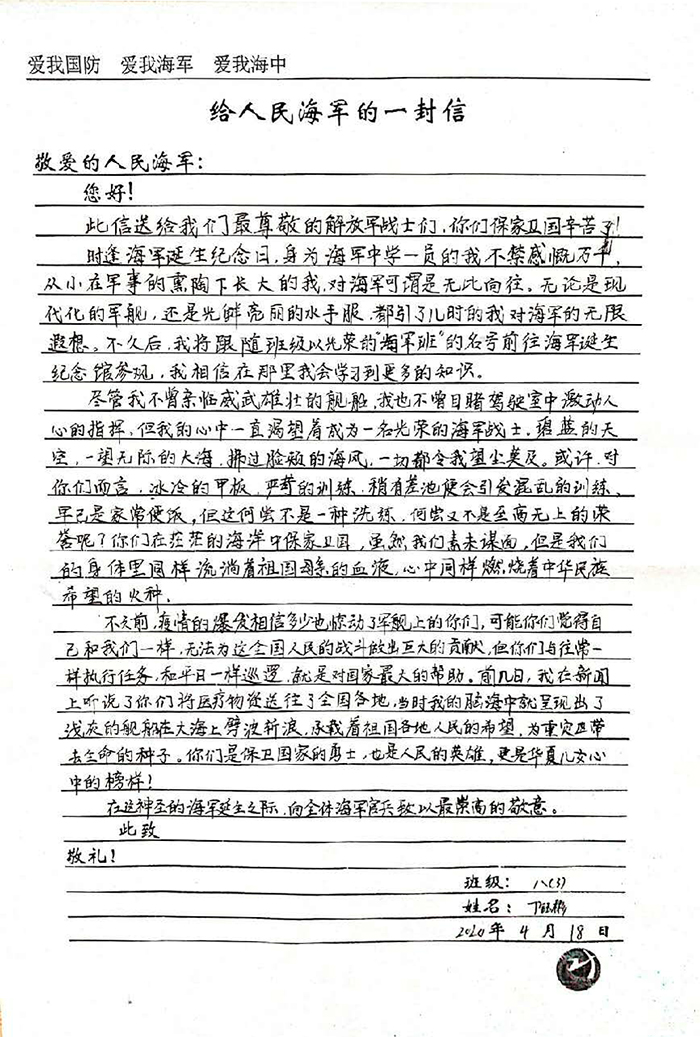 爱我国防 爱我海军 爱我海中
给人民海军的一封信
敬爱的人民海军：
您好！
此信送给我们最尊敬的解放军战士们，你们保家卫国辛苦了！
时逢海军诞生纪念日，身为海军中学一员的我不禁感慨万千，
从小在军事的熏陶下长大的我，对海军可谓是无比向往。无论是现
代化的军舰，还是光鲜亮丽的水手服，都引了儿时的我对海军的无限
遐想。不久后，我将跟随班级以光荣的“海军班”的名号前往海军诞生
纪念馆参观，我相信在那里我会学习到更多的知识。
尽管我不曾亲临威武雄壮的舰船，我也不曾目睹驾驶室中激动人
心的指挥，但我的心中一直渴望着成为一名光荣的海军战士。碧蓝的天
空，一望无际的大海，拂过脸颊的海风，一切都令我望尘莫及。或许，对
你们而言，冰冷的甲板，严苛的训练，稍有差池便会引发混乱的训练，
早已是家常便饭，但这何尝不是一种洗练，何尝又不是至高无上的荣
誉呢？你们在茫茫的海洋中保家卫国，虽然我们素未谋面，但是我们
的身体里同样流淌着祖国母亲的血液，心中同样燃烧着中华民族
希望的火种。
不久前，疫情的爆发相信多少也惊动了军舰上的你们，可能你们觉得自
己和我们一样，无法为这全国人民的战斗做出巨大的贡献，但你们与往常一
样执行任务，和平日一样巡逻，就是对国家最大的帮助。前几日，我在新闻
上听说了你们将医疗物资送往了全国各地，当时我的脑海中就呈现出了
浅灰的舰船在大海上劈波斩浪，承载着祖国各地人民的希望，为重灾区带
去生命的种子。你们是保卫国家的勇士，也是人民的英雄，更是华夏儿女心
中的榜样！
在这神圣的海军诞生之际，向全体海军官兵致以最崇高的敬意。
此致
敬礼！
班级：八（3）
姓名：丁钰彬
2020年 4 月 18 日